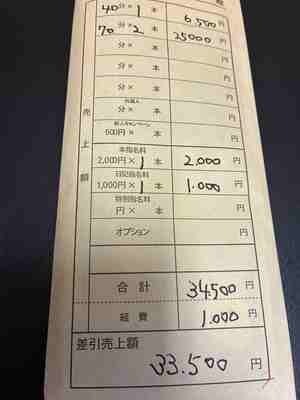 40分×1本 6,500円
70分×2本 25000円
分×本 円
分×本 円
外国人
分×本 円
新人キャンペーン
500円×本 円
売上額
本指名料
2,000円×1本 2,000円
日記指名料
1,000円×1本 1,000円
特別指名料
円×本 円
オプション 円
合計 34,500円
経費 1,000円
差引売上額
33,500円